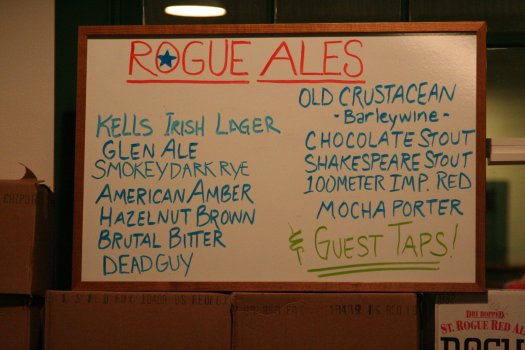 ROGUE ALES
KELLS IRISH LAGER
GLEN ALE
SMOKEY DARK RYE
AMERICAN AMBER
HAZELNUT BROWN
BRUTAL BITTER
DEAD GUY
OLD CRUSTACEAN
- Barleywine -
CHOCOLATE STOUT
SHAKESPEARE STOUT
100 METER IMP. RED
MOCHA PORTER
& GUEST TAPS!
DRY HOPPED
ST. ROGUE RED ALE